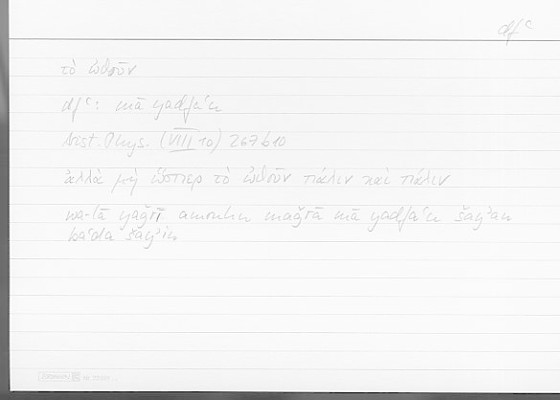 dfʿ
τὸ ὠθοῦν
dfʿ: mā yadfaʿu
Arist. Phys. (VIII 10) 267 b 10
ἀλλὰ μὴ ὥσπερ τὸ ὠθοῦν πάλιν καὶ πάλιν
wa-lā yaǧrī amruhu maǧrā mā yadfaʿu šayʾan
baʿda šayʾin